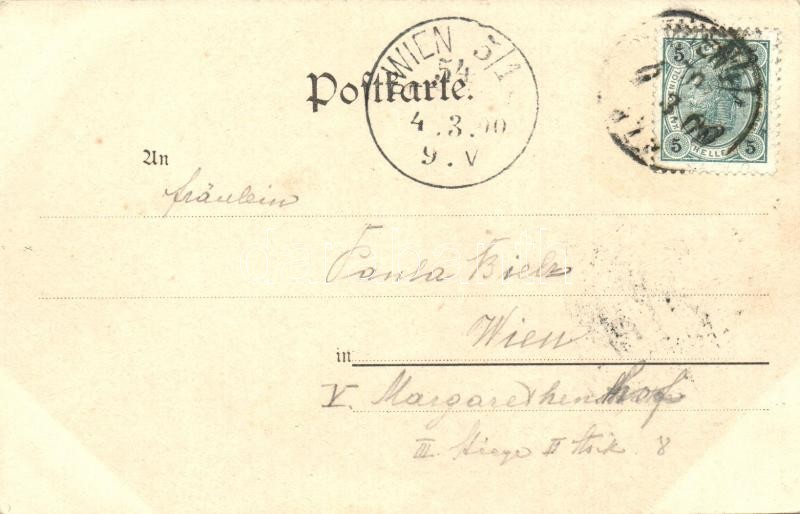 WIEN 5/1
54
4.3.00
9.V
Postkarte.
5 5
5 HELLER 5
An
Fräulein
Paula Biela
Wien
in
V. Margarethenhof
III Stiege II Stock 8